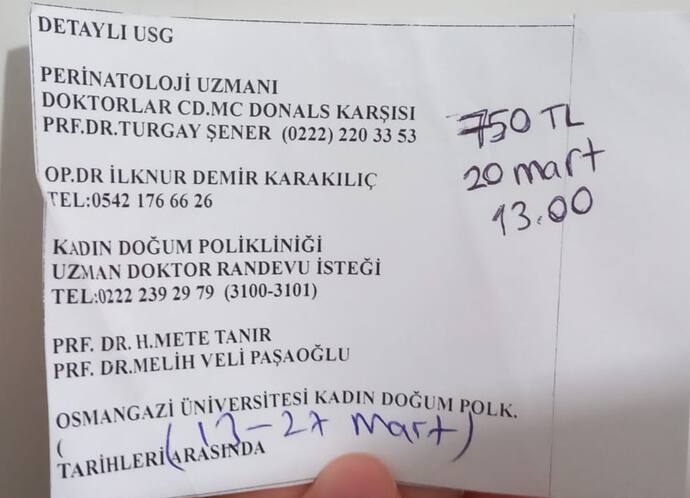 DETAYLI USG
PERİNATOLOJİ UZMANI
DOKTORLAR CD.MC DONALS KARŞISI
PRF.DR.TURGAY ŞENER (0222) 220 33 53
750 TL
20 mart
13.00
OP.DR İLKNUR DEMİR KARAKILIÇ
TEL:0542 176 66 26
KADIN DOĞUM POLİKLİNİĞİ
UZMAN DOKTOR RANDEVU İSTEĞİ
TEL:0222 239 29 79 (3100-3101)
PRF. DR. H.METE TANIR
PRF. DR.MELİH VELİ PAŞAOĞLU
OSMANGAZİ ÜNİVERSİTESİ KADIN DOĞUM POLK.
( (13-27 Mart)
TARİHLERİ ARASINDA